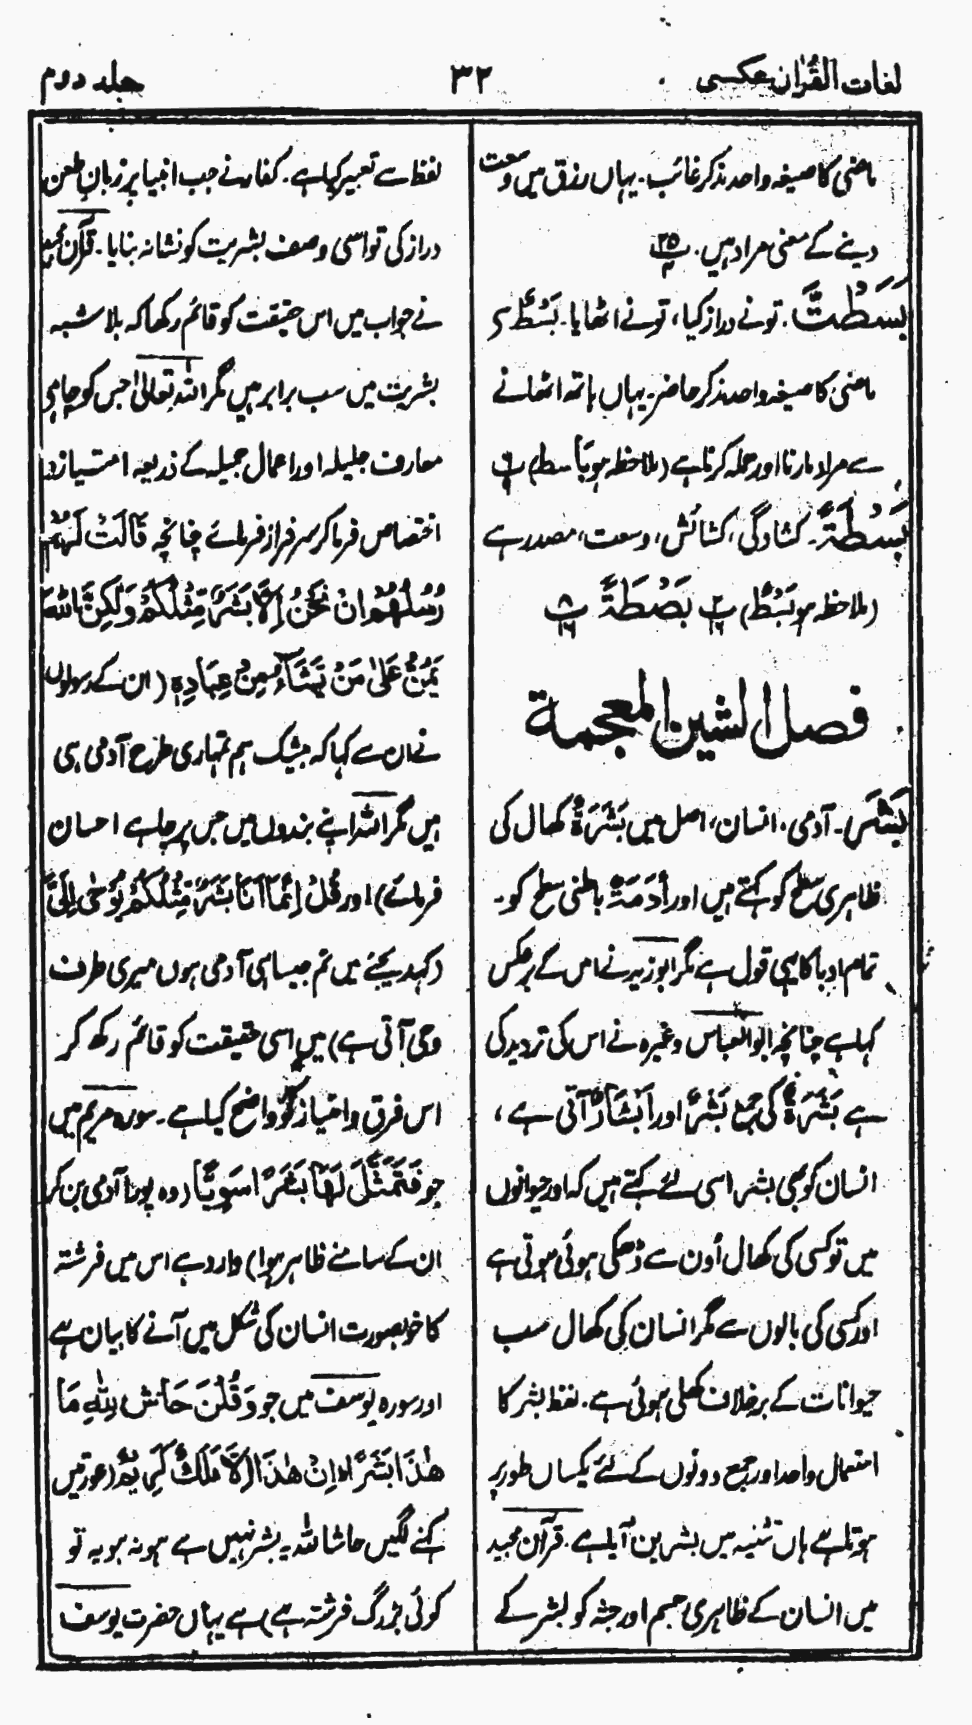 لغات القرآن عکسی
۳۲
جلد دوم
ماضی کا صیغہ واحد مذکر غائب۔ یہاں رزق میں وسعت
دینے کے معنی مراد ہیں۔ پ ۲۵
بَسَطْتَّ۔ تو نے دراز کیا، تو نے اٹھایا۔ بَسْطٌ سے
ماضی کا صیغہ واحد مذکر حاضر۔ یہاں ہاتھ اٹھانے
سے مراد مارنا اور حملہ کرنا ہے (ملاحظہ ہو بَاسط) پ
بَسْطَةً۔ کشادگی، کشائش، وسعت، مصدر ہے
(ملاحظہ ہو بَسْطٌ) پ ۲/۱۶ بَصْطَةً پ ۸/۱۶
فصل الشین المعجمة
بَشَر۔ آدمی، انسان، اصل میں بَشَرَةٌ کھال کی
ظاہری سطح کو کہتے ہیں اور أَدَمَةٌ باطنی سطح کو۔
تمام ادبا کا یہی قول ہے مگر ابوزید نے اس کے برعکس
کہا ہے چنانچہ ابوالعباس وغیرہ نے اس کی تردید کی
ہے بَشَرَةٌ کی جمع بَشَرٌ اور اَبْشَارٌ آتی ہے،
انسان کو بھی بشر اسی لئے کہتے ہیں کہ اور حیوانوں
میں تو کسی کی کھال اُون سے ڈھکی ہوئی ہوتی ہے
اور کسی کی بالوں سے مگر انسان کی کھال سب
حیوانات کے برخلاف کھلی ہوئی ہے۔ لفظ بشر کا
استعمال واحد اور جمع دونوں کے لئے یکساں طور پر
ہوتا ہے ہاں تثنیہ میں بشرین آیا ہے۔ قرآن مجید
میں انسان کے ظاہری جسم اور جثہ کو بشر کے
لفظ سے تعبیر کیا ہے۔ کفار نے جب انبیا پر زبانِ طعن
دراز کی تو اسی وصف بشریت کو نشانہ بنایا۔ قرآن مجید
نے جواب میں اس حقیقت کو قائم رکھا کہ بلا شبہ
بشریت میں سب برابر ہیں مگر اللہ تعالیٰ جس کو چاہے
معارف جلیلہ اور اعمال جمیلہ کے ذریعہ امتیاز و
اختصاص فرما کر سرفراز فرمائے چنانچہ قَالَتْ لَهُمْ
رُسُلُهُمْ اِنْ نَحْنُ اِلَّا بَشَرٌ مِّثْلُكُمْ وَلٰكِنَّ اللّٰهَ
يَمُنُّ عَلٰى مَنْ يَّشَآءُ مِنْ عِبَادِهٖ (ان کے رسولوں
نے ان سے کہا کہ بیشک ہم تمہاری طرح آدمی ہی
ہیں مگر اللہ اپنے بندوں میں جس پر چاہے احسان
فرمائے) اور قُلْ اِنَّمَا اَنَا بَشَرٌ مِّثْلُكُمْ يُوْحٰى اِلَيَّ
(کہدیجئے میں تم جیسا ہی آدمی ہوں میری طرف
وحی آتی ہے) میں اسی حقیقت کو قائم رکھ کر
اس فرق و امتیاز کو واضح کیا ہے۔ سورہ مریم میں
جو فَتَمَثَّلَ لَهَا بَشَرًا سَوِيًّا (وہ پورا آدمی بن کر
ان کے سامنے ظاہر ہوا) وارد ہے اس میں فرشتہ
کا خوبصورت انسان کی شکل میں آنے کا بیان ہے
اور سورہ یوسف میں جو وَقُلْنَ حَاشَ لِلّٰهِ مَا
هٰذَا بَشَرًا اِنْ هٰذَا اِلَّا مَلَكٌ كَرِيْمٌ (عورتیں
کہنے لگیں حاشا للہ یہ بشر نہیں ہے ہو نہ ہو یہ تو
کوئی بزرگ فرشتہ ہے) ہے یہاں حضرت یوسف